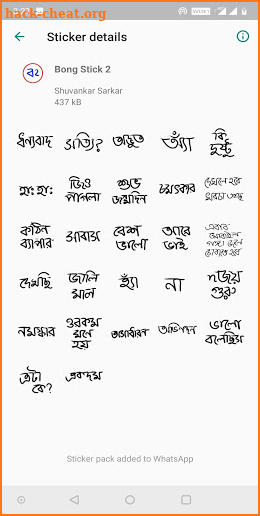 hack-cheat.org
Sticker details
বং
Bong Stick 2
Shuvankar Sarkar
437 kB
ধন্যবাদ সত্যি? অদ্ভুত অ্যাঁ কি দুষ্টু
হাঃ হাঃ জিও পাগলা শুভ জন্মদিন চমৎকার
কঠিন ব্যাপার সাবাস বেশ ভালো আরে ভাই
দেখছি জালি মাল হ্যাঁ না জয় গুরু
নমস্কার ওরকম মনে হয় অসাধারণ অভিনন্দন ভালো বলেছিস
এটা কে? একদম
Sticker pack added to WhatsApp